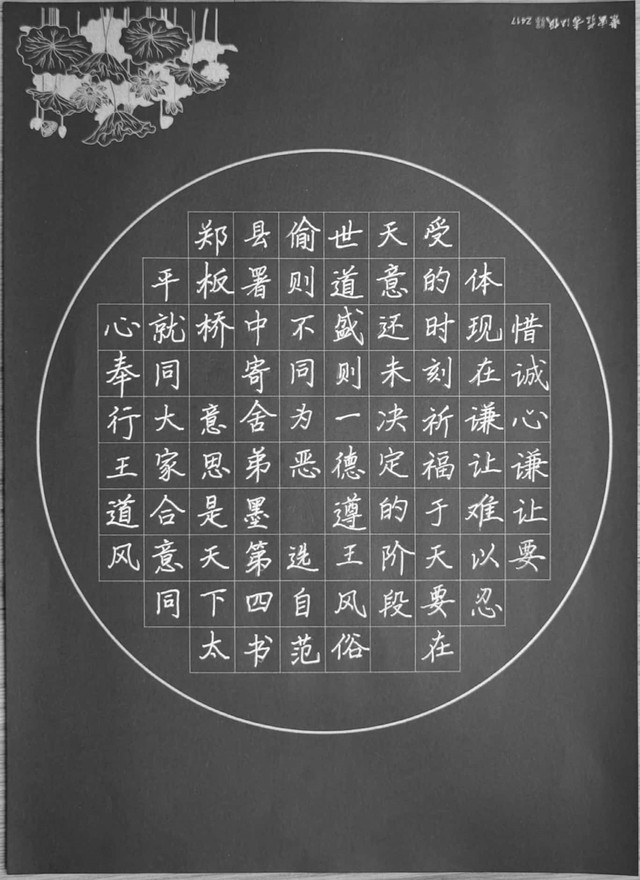 惜诚心谦让要
体现在谦让难以忍
受的时刻祈福于天要在
天意还未决定的阶段
世道盛则一德遵王风俗
偷则不同为恶 选自范
县署中寄舍弟墨第四书
郑板桥 意思是天下太
平就同大家合意同
心奉行王道风
2417